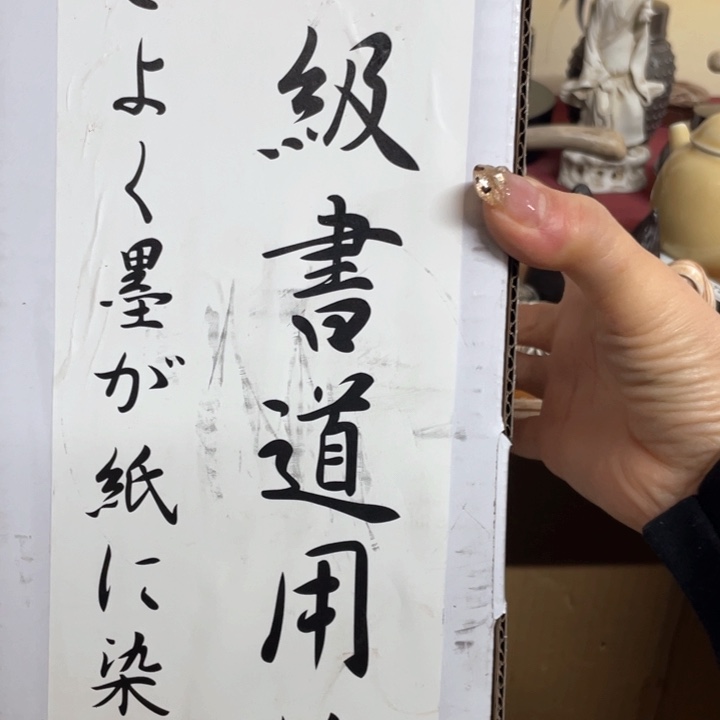 級書道用
よく墨が紙に染